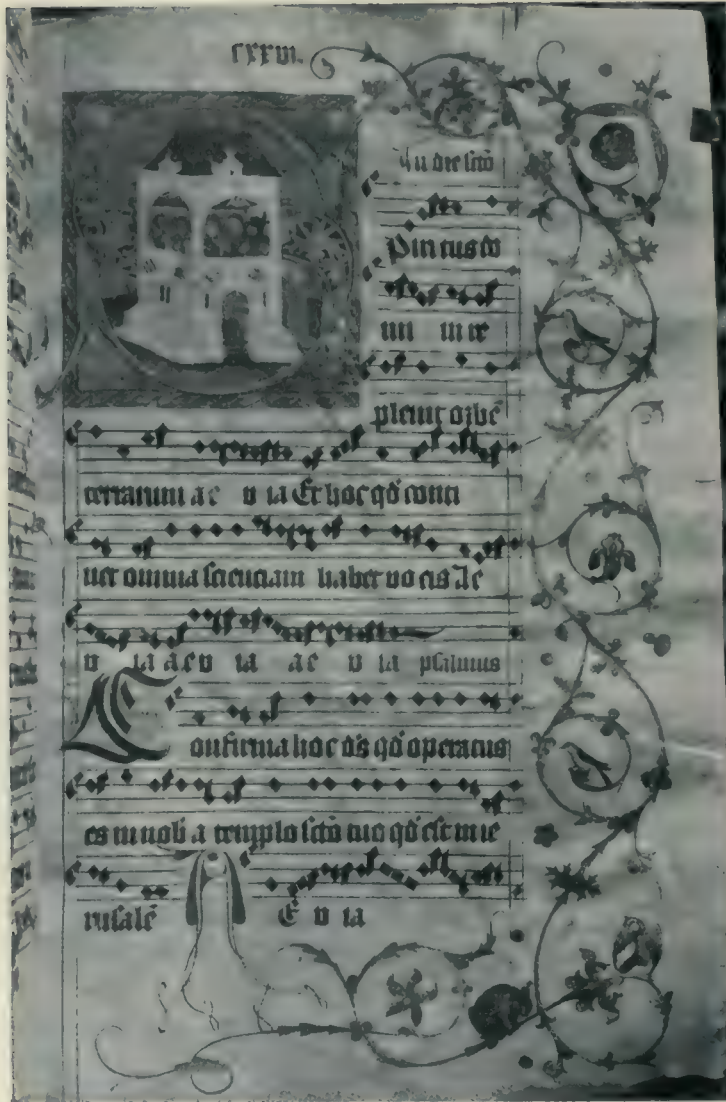 cxxiii.
In die scto
Piritus do
mi ni re
pleuit orbē
terrarum a e v ia Et hoc qd conti
net omnia scienciam habet vo cis Ale
v ia a e v ia a e v ia psalmus
Confirma hoc ds qd operatus
es in nob a templo scto tuo qd est in ie
rusalē E v ia